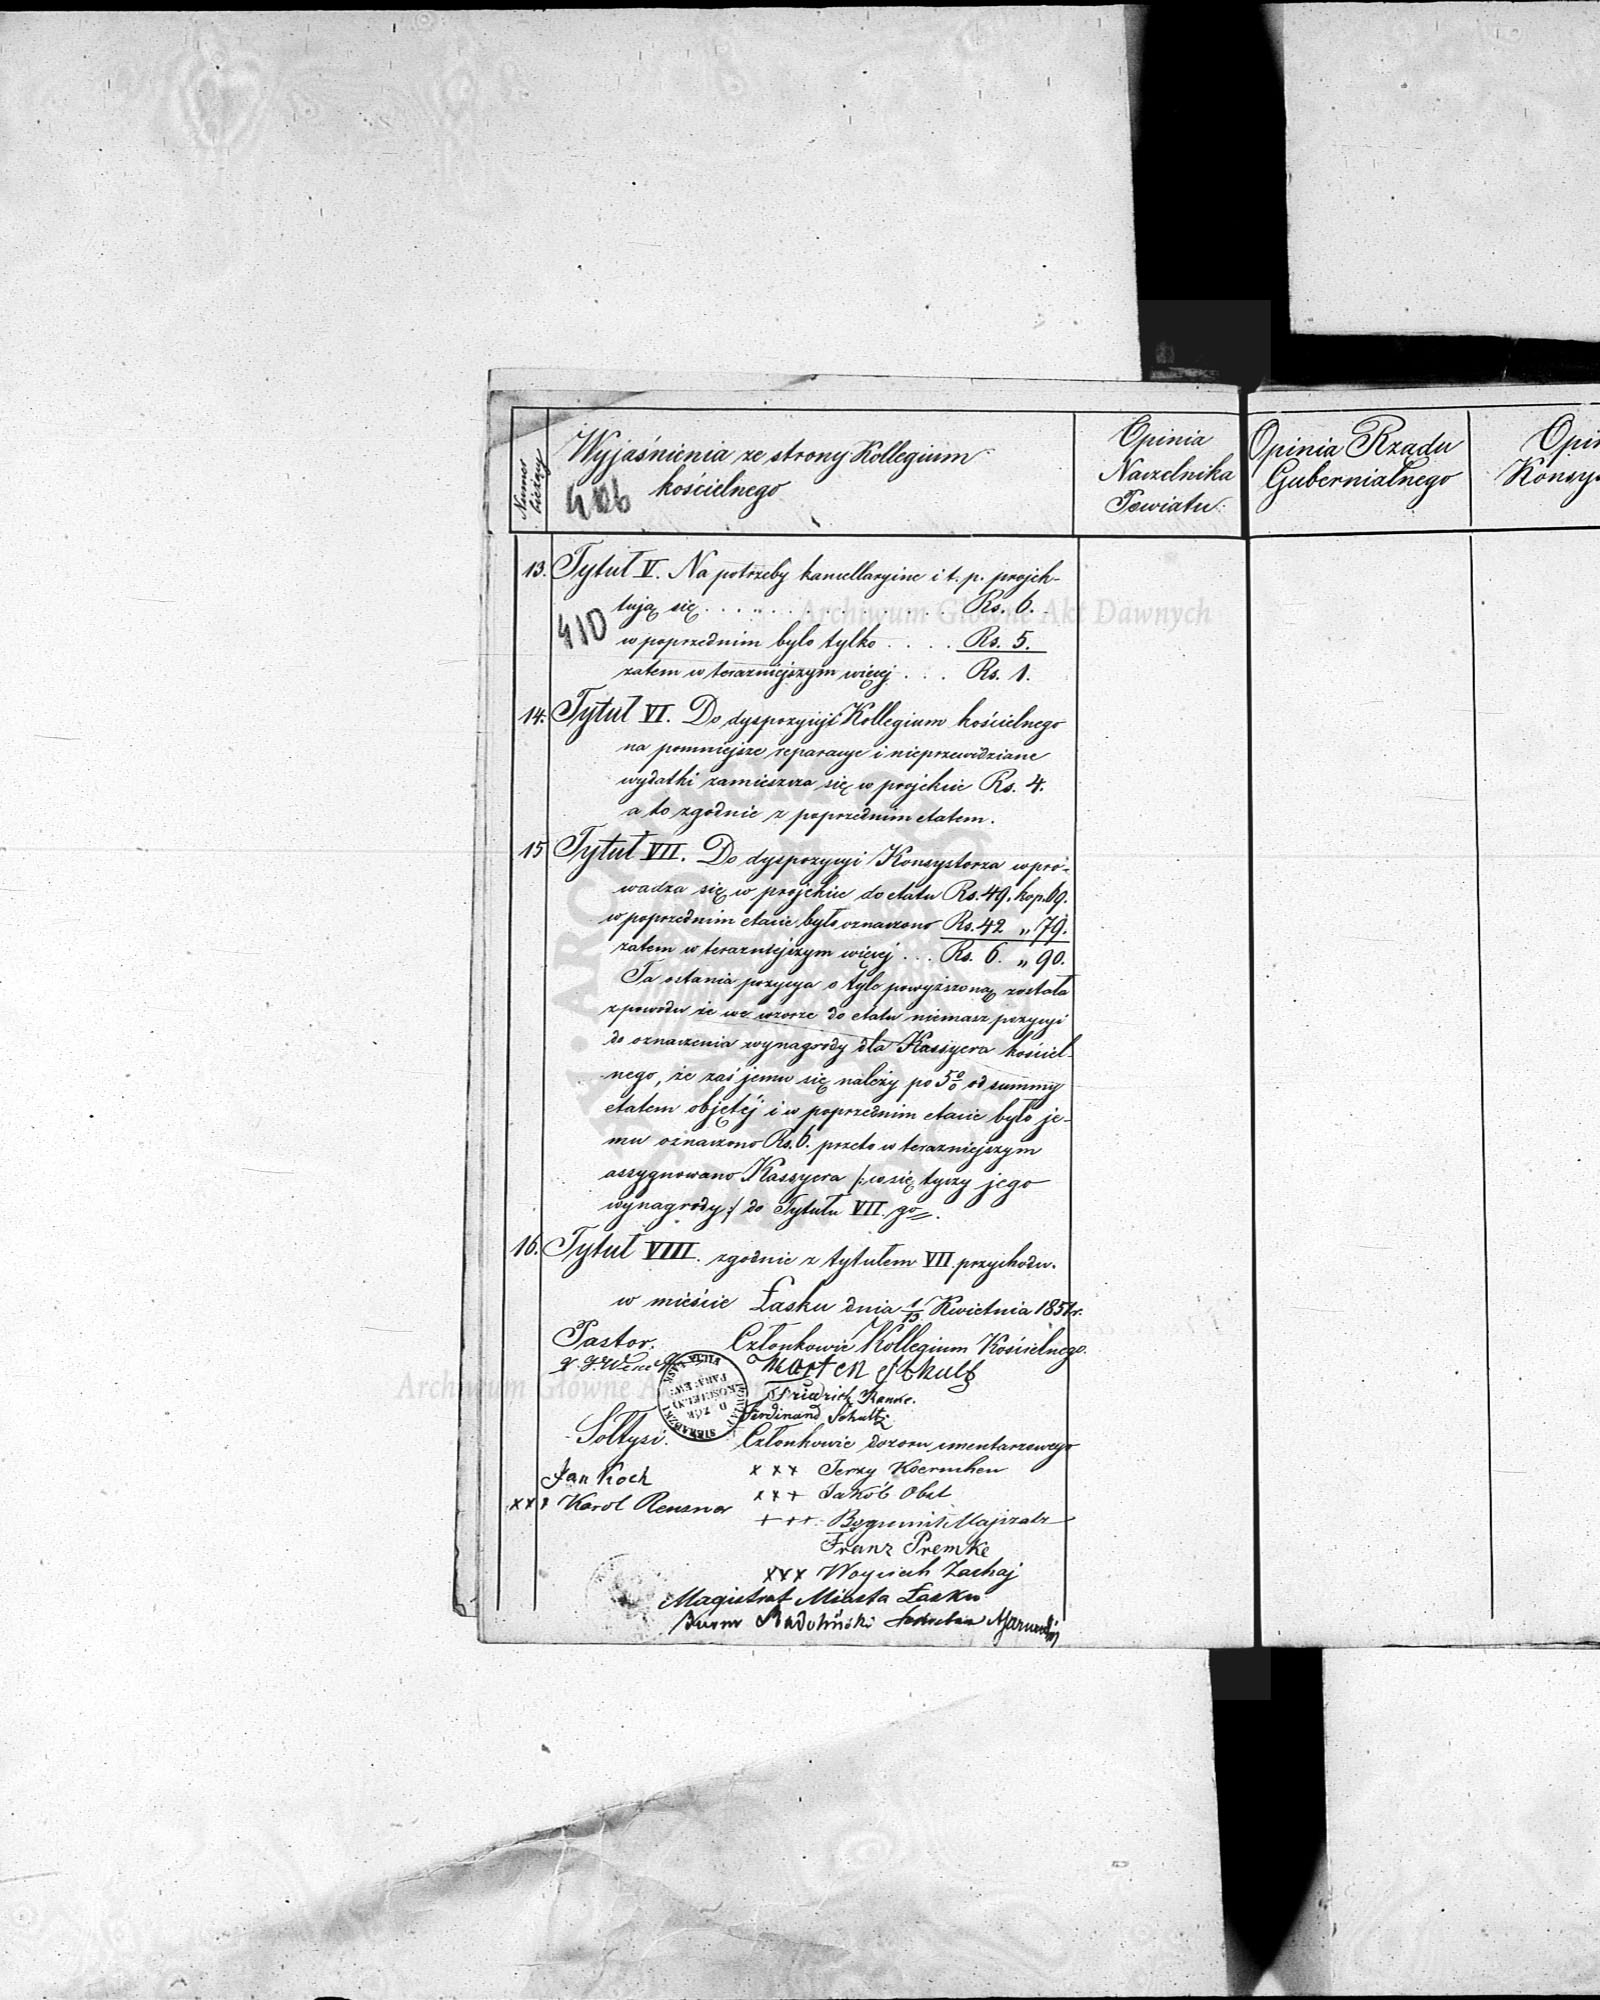 Numer bieżący
Wyjaśnienia ze strony Kollegium
kościelnego
406
Opinia
Naczelnika
Powiatu
Opinia Rządu
Gubernialnego
13. Tytuł V. Na potrzeby kancellaryine i t. p. projek-
tują się . . . . . . . . . . . . . . . . . Rs. 6.
410
w poprzednim było tylko . . . . Rs. 5.
zatem w teraźniejszym więcej . . . Rs. 1.
14. Tytuł VI. Do dyspozycyi Kollegium kościelnego
na pomniejsze reparacye i nieprzewidziane
wydatki zamieszcza się w projekcie Rs. 4.
a to zgodnie z poprzednim etatem.
15 Tytuł VII. Do dyspozycyi Konsystorza wpro-
wadza się w projekcie do etatu Rs. 49. kop. 69.
w poprzednim etacie było oznaczono Rs. 42 „ 79.
zatem w teraźniejszym więcej . . . Rs. 6. „ 90.
Ta ostania pozycya o tyle powyższoną została
z powodu że we wzorze do etatu niemasz pozycyi
do oznaczenia wynagrody dla Kassyera kościel-
nego, że zaś jemu się należy po 5% od summy
etatem objętéj i w poprzednim etacie było je-
mu oznaczono Rs. 6. przeto w teraźniejszym
assygnowano Kassyera /: co się tyczy jego
wynagrody :/ do Tytułu VII. go.
16. Tytuł VIII. zgodnie z tytułem VII przychodu.
w mieście Łasku dnia 1/13 Kwietnia 1851 r.
Pastor. Członkowie Kollegium Kościelnego.
Marten Schultz
Friedrich
Ferdinand Schultz
Sołtysi. Członkowie dozoru cmentarzowego
xxx Jerzy
Jan Koch
xxx Jakób Obst
xxx Karol Reusner
+++ Bogumił
Franz Premke
xxx Woyciech Zachaj
Magistrat Miasta Łasku
Archiwum Główne Akt Dawnych